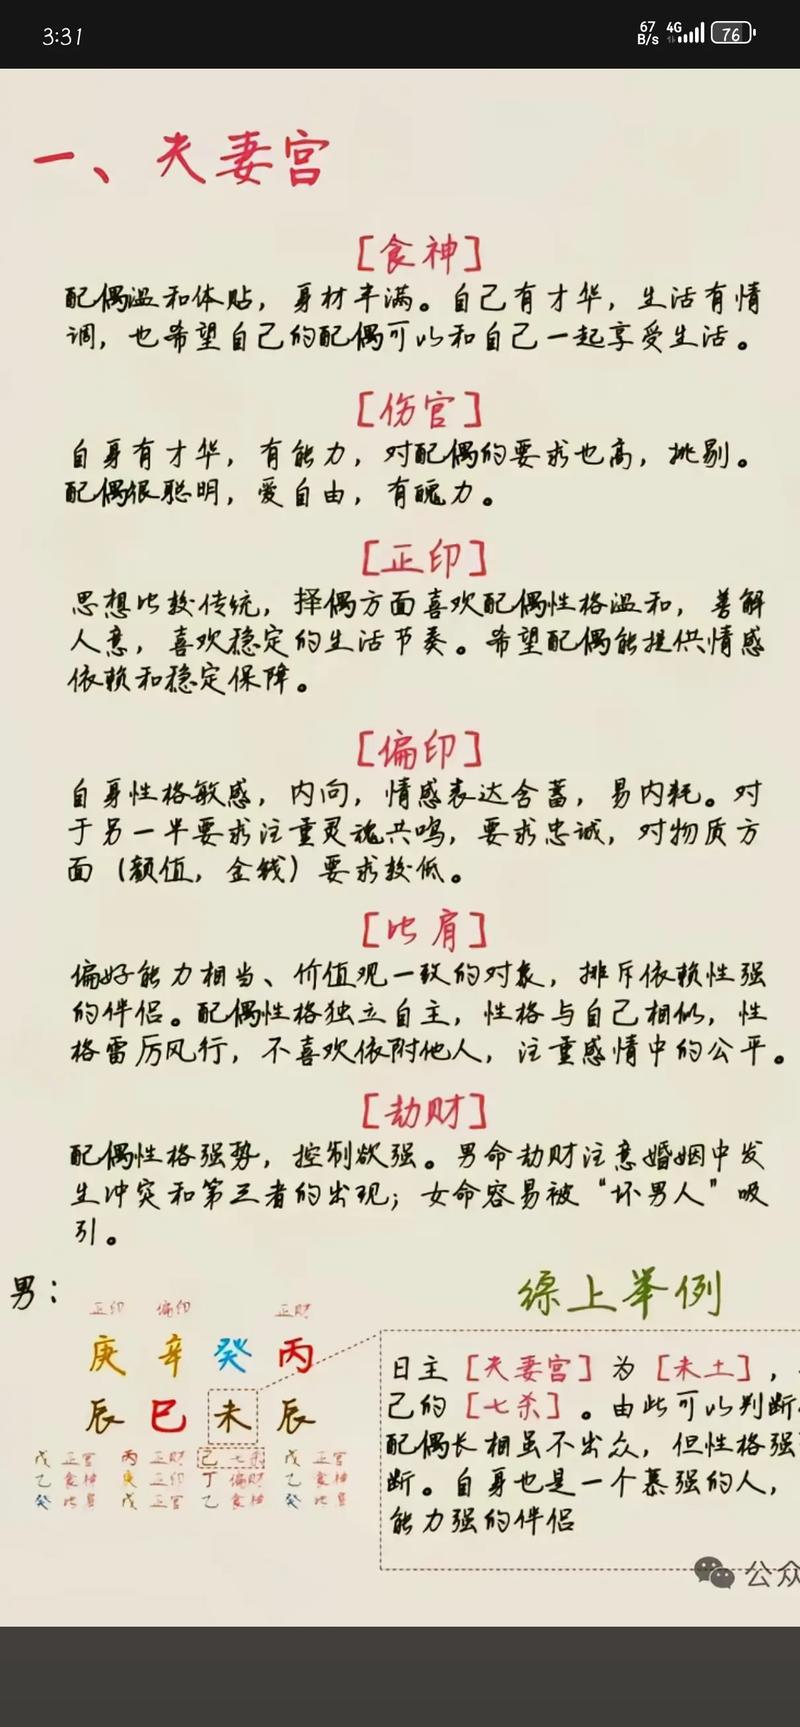 3:31
67 B/s 4G 76
一、夫妻宫
[食神]
配偶温和体贴，身材丰满。自己有才华，生活有情
调，也希望自己的配偶可以和自己一起享受生活。
[伤官]
自身有才华，有能力，对配偶的要求也高，挑剔。
配偶很聪明，爱自由，有魄力。
[正印]
思想比较传统，择偶方面喜欢配偶性格温和，善解
人意，喜欢稳定的生活节奏。希望配偶能提供情感
依赖和稳定保障。
[偏印]
自身性格敏感，内向，情感表达含蓄，易内耗。对
于另一半要求注重灵魂共鸣，要求忠诚，对物质方
面（颜值，金钱）要求较低。
[比肩]
偏好能力相当、价值观一致的对象，排斥依赖性强
的伴侣。配偶性格独立自主，性格与自己相似，性
格雷厉风行，不喜欢依附他人，注重感情中的公平。
[劫财]
配偶性格强势，控制欲强。男命劫财注意婚姻中发
生冲突和第三者的出现；女命容易被“坏男人”吸
引。
男：
正印 偏印 正财
庚 辛 癸 丙
辰 巳 未 辰
戊 正官 丙 正财 己 七杀 戊 正官
乙 食神 庚 正印 丁 偏财 乙 食神
癸 比肩 戊 正官 乙 食神 癸 比肩
综上举例
日主[夫妻宫]为[未土]，
己的[七杀]。由此可以判断
配偶长相虽不出众，但性格强
断。自身也是一个慕强的人，
能力强的伴侣
公众